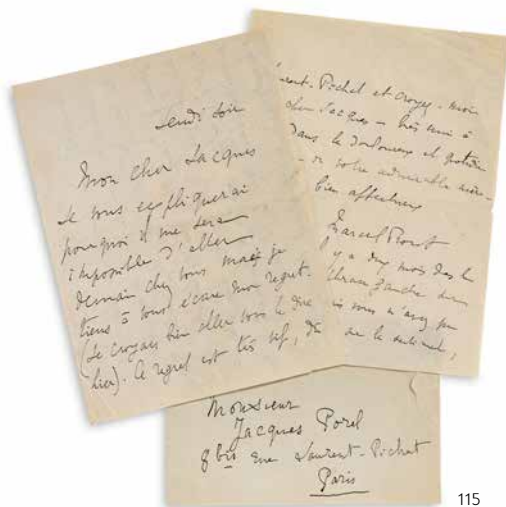 Lundi soir
Mon cher Jacques
Je vous expliquerai
pourquoi il me sera
impossible d'aller
demain chez vous mais je
tiens à vous écrire mon regret.
(Je croyais bien aller vous le dire
hier). Ce regret est très vif,
Pichat et croyez-moi
cher Jacques
dans le douloureux et
votre admirable
bien affectueux
Marcel Proust
y a deux mois dans la
vous n'avez pu
Monsieur
Jacques Porel
8 bis rue Laurent-Pichat
Paris
115